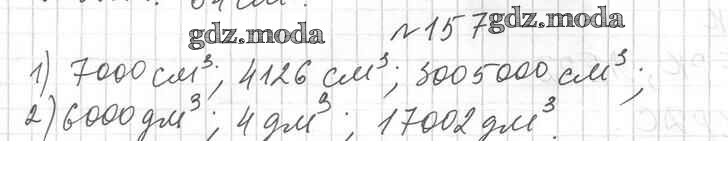 gdz.moda №157 gdz.moda
1) 7000 см³; 4126 см³; 3005000 см³;
2) 6000 дм³; 4 дм³; 17002 дм³.